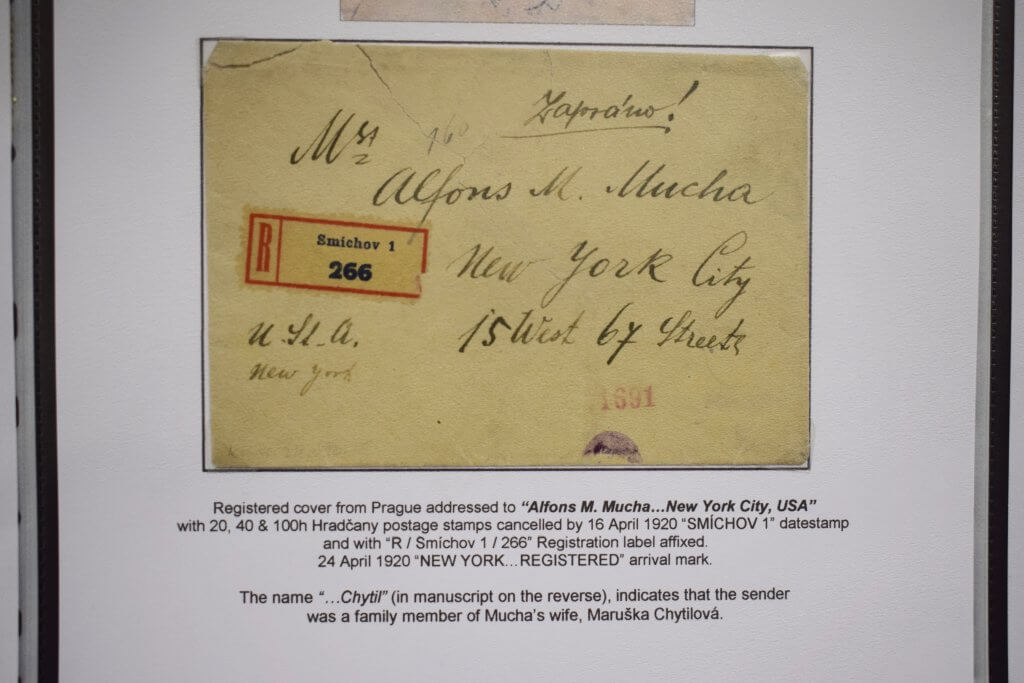 Zapráno!
Mst
160
Alfons M. Mucha
R
Smíchov 1
266
New York City
U. St. A.
15 West 67 Streets
New York
1691
Registered cover from Prague addressed to “Alfons M. Mucha…New York City, USA”
with 20, 40 & 100h Hradčany postage stamps cancelled by 16 April 1920 “SMÍCHOV 1” datestamp
and with “R / Smíchov 1 / 266” Registration label affixed.
24 April 1920 “NEW YORK…REGISTERED” arrival mark.
The name “…Chytil” (in manuscript on the reverse), indicates that the sender
was a family member of Mucha’s wife, Maruška Chytilová.